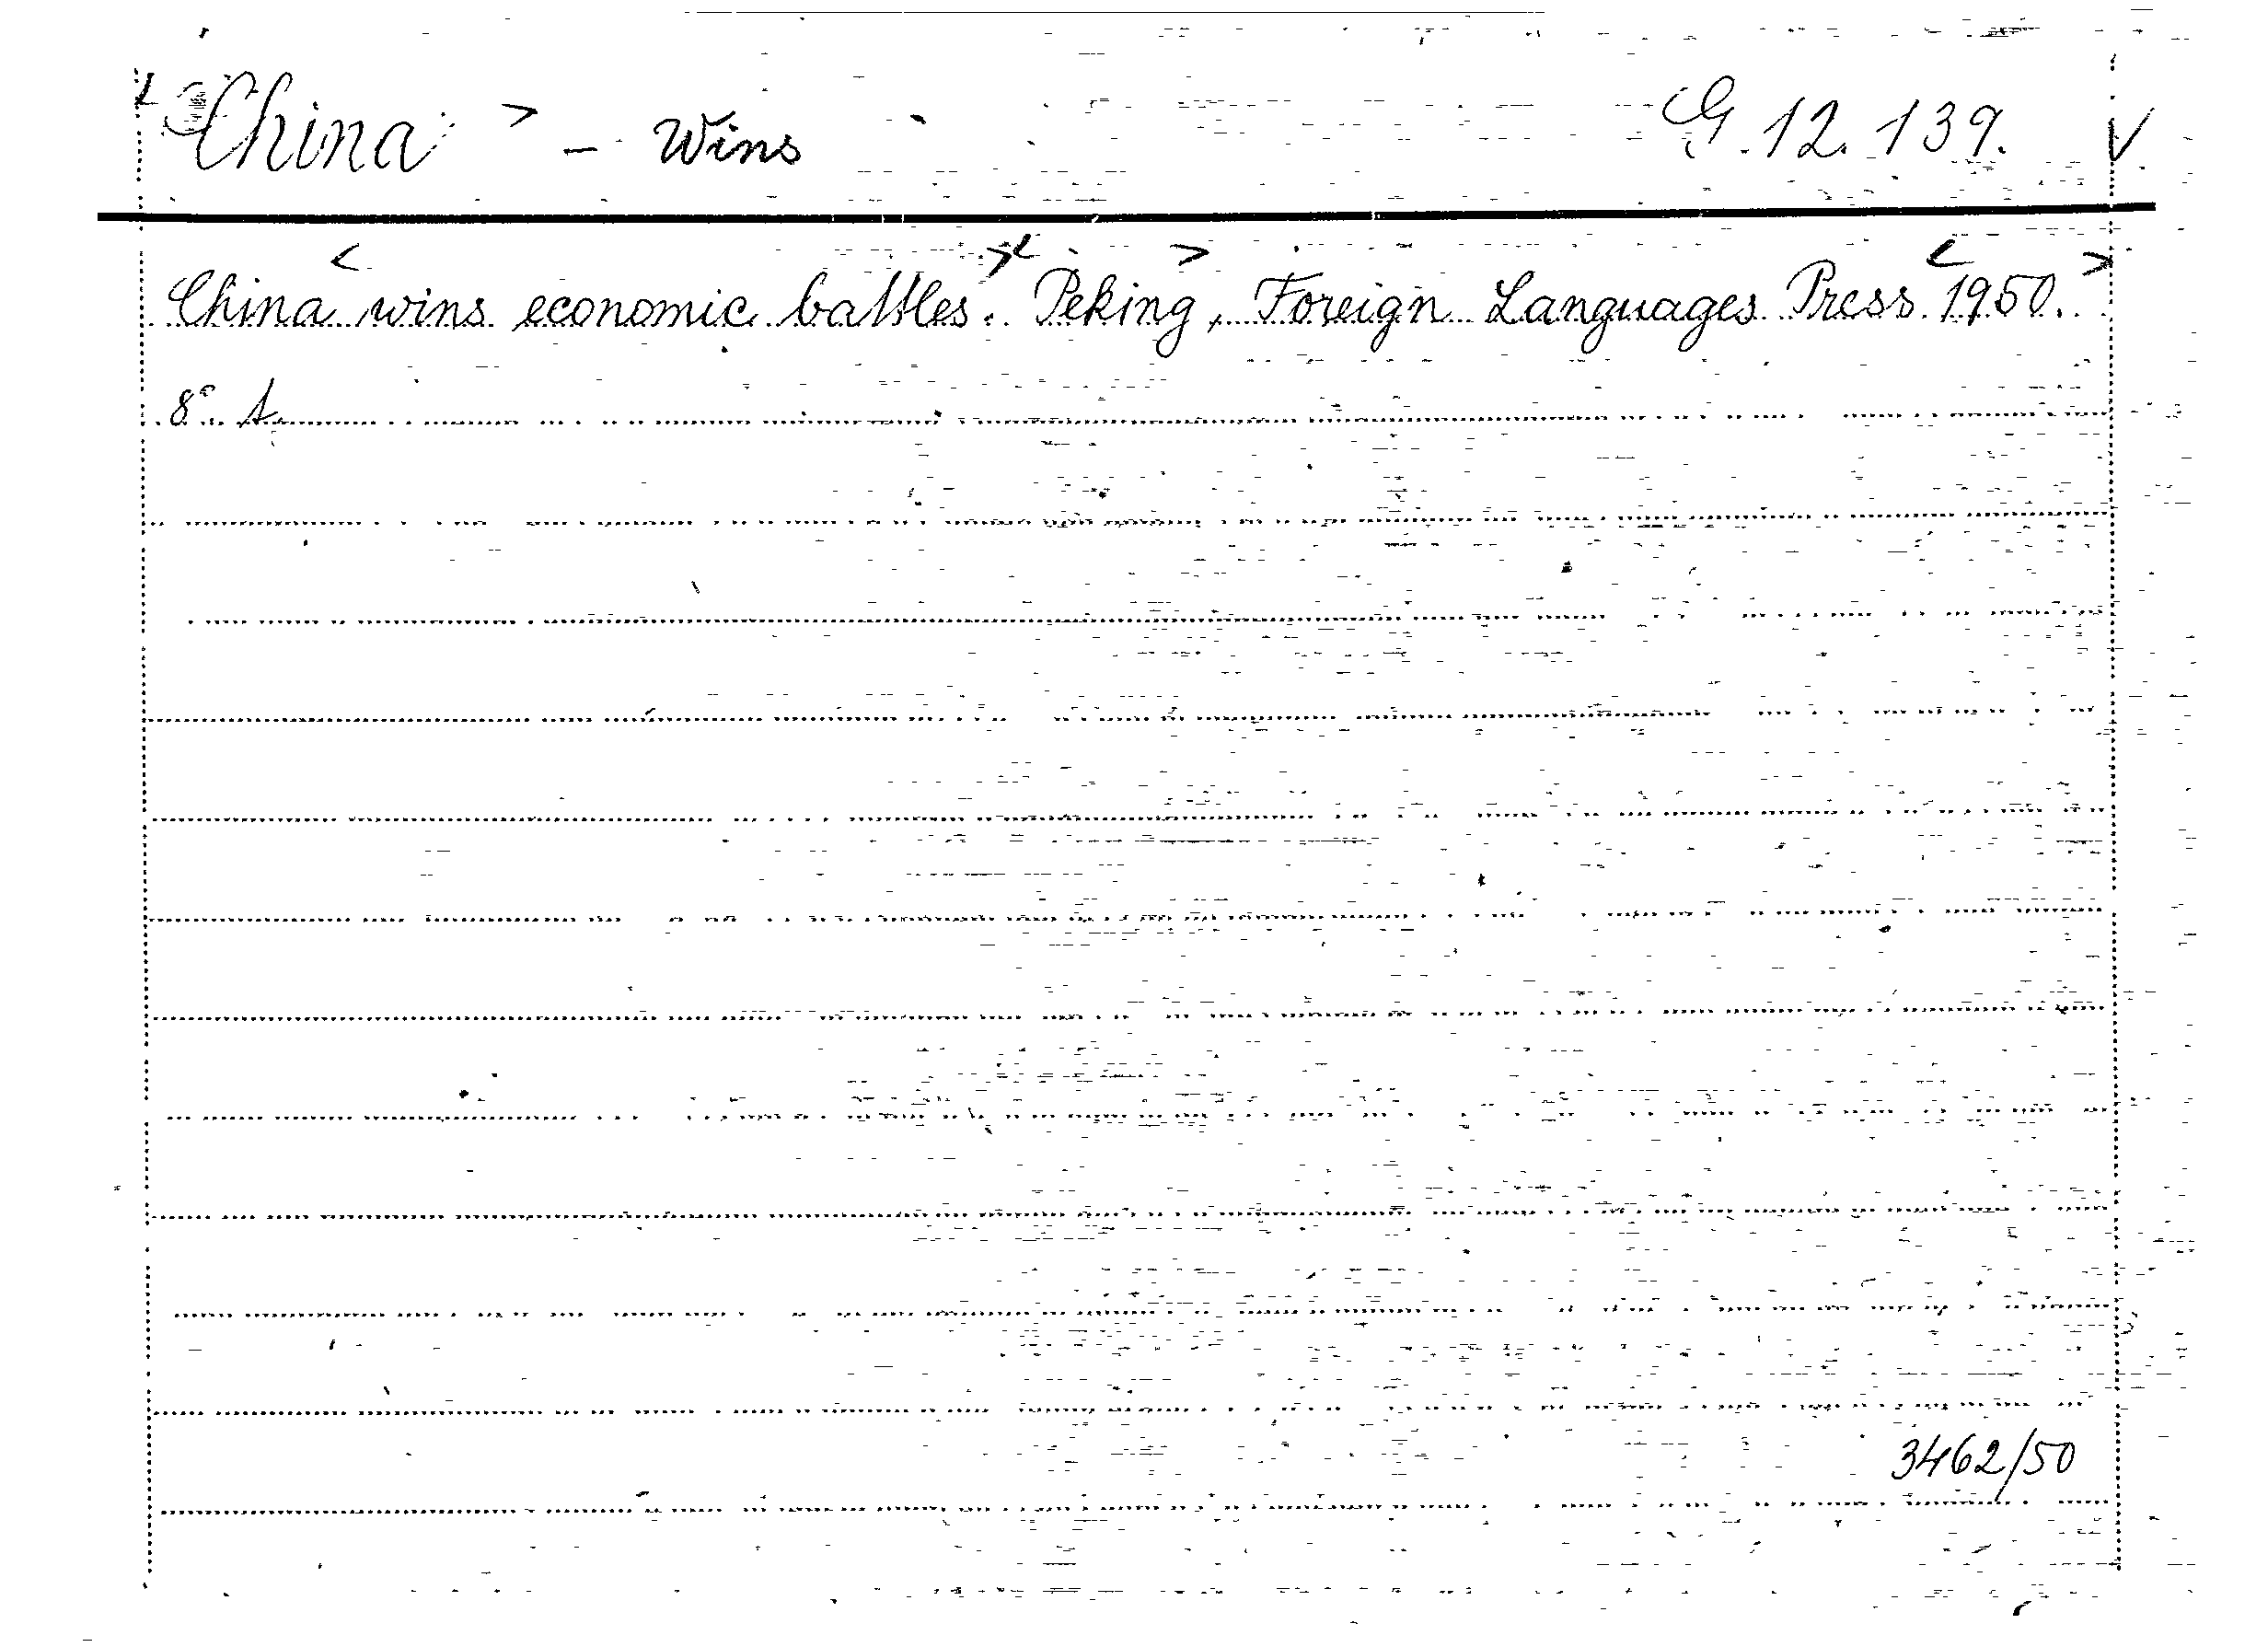 China - Wins G. 12. 139.
China wins economic battles. Peking, Foreign Languages Press 1950.
8° t.
3462/50